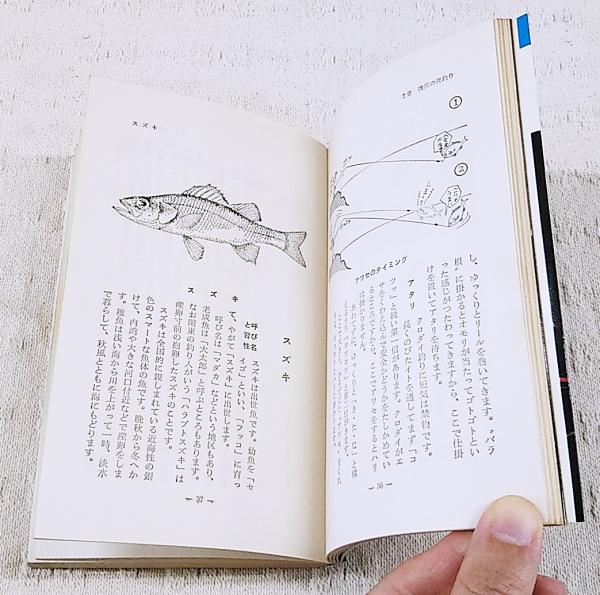 2章
①
②
し、ゆっくりとリールを巻いてきます。〝バラ
根〟に掛かるとオモリが当たってゴトゴトとい
った感じがつたわってきますから、ここで仕掛
けを置いてアタリを待ちます。
アタリ クロダイ釣りに短気は禁物です。
アワセのタイミング 長くのびたイトを通してまず「コ
ツッ」と鋭い第一信があります。クロダイがエ
サをくわえ込んで安全かどうかをたしかめてい
るところですから、ここでアワセをするとハリ
は掛かりません。
ゆっくり「き・た・な」と構
— 36 —
スズキ
スズキ
呼び名 スズキは出世魚です。幼魚を「セ
と習性 イゴ」といい、「フッコ」に育っ
て、やがて「スズキ」に出世します。
呼び名は「マダカ」などという地区もあり、
老成魚は「大太郎」と呼ぶところもあります。
なお関東の釣り人がいう「ハラブト・スズキ」は
産卵寸前の抱卵したスズキのことです。
スズキは全国的に親しまれている近海性の銀
色のスマートな魚体の魚です。晩秋から冬へか
けて、内湾や大きな河口付近などで産卵をしま
す。稚魚は浅い海から川を上がって一時、淡水
で暮らして、秋風とともに海にもどります。
スズキ
— 37 —